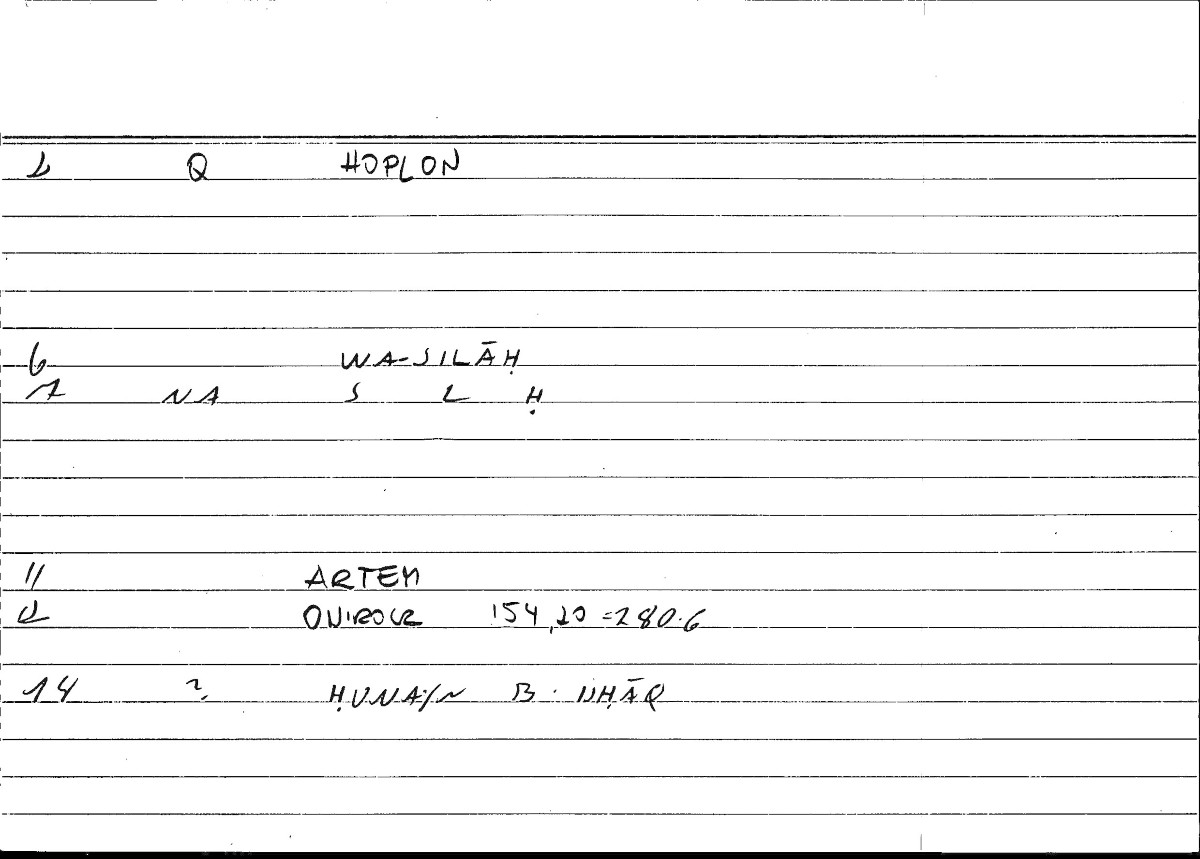 2 Q HOPLON
6 WA-SILĀḤ
7 NA S L Ḥ
11 ARTEM
12 ONIROCR 154,20 =280.6
14 ? ḤUNAYN B. ISḤĀQ